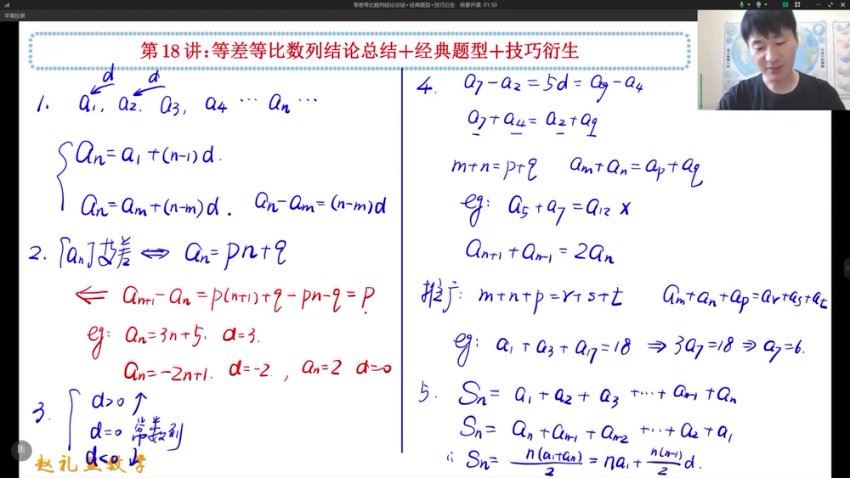 等差等比数列结论总结+经典题型+技巧衍生 将要开课: 01:50
苹果投屏
第18讲:等差等比数列结论总结+经典题型+技巧衍生
d d
1. a₁, a₂, a₃, a₄ ⋯ aₙ ⋯
aₙ=a₁+(n-1)d.
aₙ=aₘ+(n-m)d. aₙ-aₘ=(n-m)d
2. {aₙ}等差 ⇔ aₙ=pn+q
⇐ aₙ₊₁-aₙ=p(n+1)+q-pn-q=p.
eg: aₙ=3n+5. d=3.
aₙ=-2n+1. d=-2, aₙ=2 d=0
3. d>0 ↑
d=0 常数列
d<0 ↓
赵礼显数学
4. a₇-a₂=5d=a₉-a₄
a₇+a₄=a₂+a₉
m+n=p+q aₘ+aₙ=aₚ+a_q
eg: a₅+a₇=a₁₂ ×
aₙ₊₁+aₙ₋₁=2aₙ
推广: m+n+p=r+s+t aₘ+aₙ+aₚ=aᵣ+aₛ+aₜ
eg: a₁+a₃+a₁₇=18 ⇒ 3a₇=18 ⇒ a₇=6.
5. Sₙ= a₁+a₂+a₃+⋯+aₙ₋₁+aₙ
Sₙ= aₙ+aₙ₋₁+aₙ₋₂+⋯+a₂+a₁
∴ Sₙ= n(a₁+aₙ)/2 = na₁+n(n-1)/2 d.